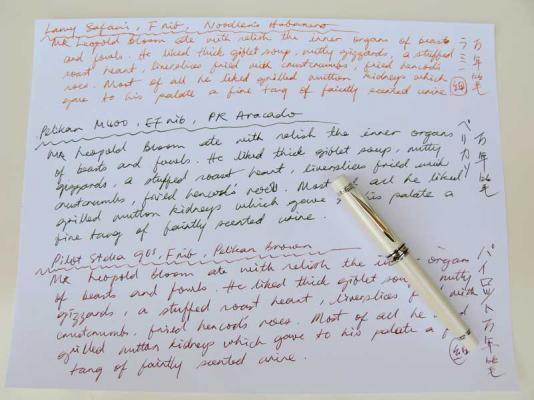 Lamy Safari, F nib, Noodler's Habanero
Mr Leopold Bloom ate with relish the inner organs of beasts
and fowls. He liked thick giblet soup, nutty gizzards, a stuffed
roast heart, liverslices fried with crustcrumbs, fried hencods
roes. Most of all he liked grilled mutton kidneys which
gave to his palate a fine tang of faintly scented urine.
ラミー万年筆
Pelikan M400, EF nib, PR Avacado
Mr Leopold Bloom ate with relish the inner organs
of beasts and fowls. He liked thick giblet soup, nutty
gizzards, a stuffed roast heart, liverslices fried with
crustcrumbs, fried hencod's roes. Most all he liked
grilled mutton kidneys which gave his palate a
fine tang of faintly scented urine.
ペリカン 万年筆
Pilot Stella 90s, F nib, Pelikan Brown
Mr Leopold Bloom ate with relish the organs
of beasts and fowls. He liked thick giblet nutty
gizzards, a stuffed roast heart, liverslices with
crustcrumbs, fried hencods roes. Most of all he
grilled mutton kidneys which gave to his palate a
tang of faintly scented urine.
パイロット万年筆